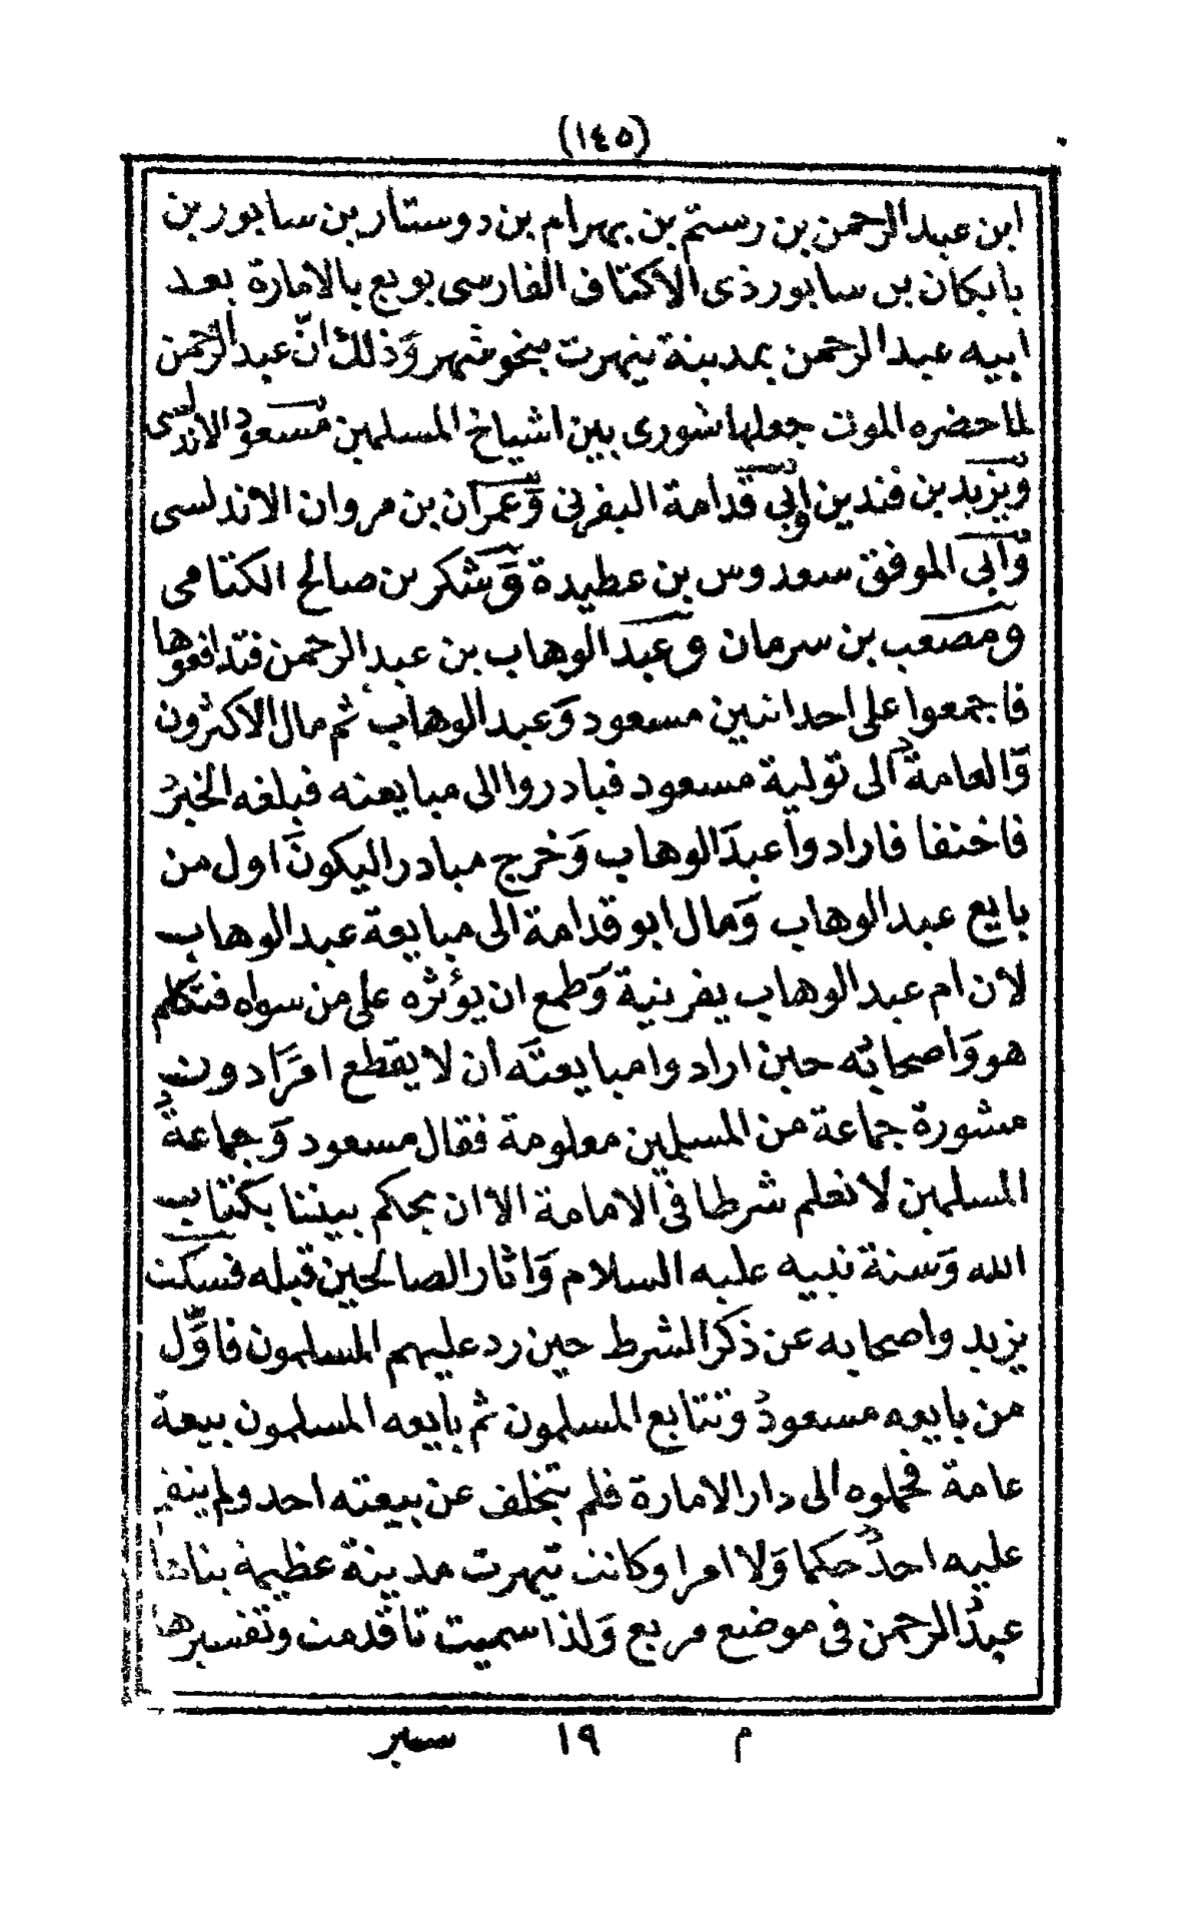 (١٤٥)
ابن عبد الرحمن بن رستم بن بهرام بن دوستار بن سابور بن
بابكان بن سابور ذى الاكتاف الفارسى بويع بالامارة بعد
ابيه عبد الرحمن بمدينة تيهرت بنحو شهر وَذلك انّ عبد الرحمن
لما حضره الموت جعلها شورى بين اشياخ المسلمين مسعود الاندلسى
ويزيد بن فندين وابى قدامة اليفرنى وَعمران بن مروان الاندلسى
وَابى الموفق سعدوس بن عطيدة وَشكر بن صالح الكتامى
ومصعب بن سرمان وعبد الوهاب بن عبد الرحمن فتدافعوها
فاجمعوا على احد اثنين مسعود وَعبد الوهاب ثم مال الاكثرون
وَالعامةُ الى تولية مسعود فبادروا الى مبايعته فبلغه الخبرُ
فاختفا فارادوا عبدَ الوهاب وَخرج مبادرا ليكونَ اول من
بايع عبد الوهاب وَمال ابو قدامة الى مبايعة عبد الوهاب
لان ام عبد الوهاب يفرنية وَطمع ان يؤثره على من سواه فتكلم
هو وَاصحابُه حين ارادوا مبايعتَه أن لا يقطع امرَا دون
مشورة جماعة من المسلمين معلومة فقال مسعود وَجماعةُ
المسلمين لا نعلم شرطا فى الامامة الا ان يحكم بيننا بكتاب
الله وَسنة نبيه عليه السلام وَاثار الصالحين قبله فسكت
يزيد واصحابه عن ذكر الشرط حين رد عليهم المسلمون فاوَّل
من بايعه مسعودُ وتتابع المسلمون ثم بايعه المسلمون بيعة
عامة فحملوه الى دار الامارة فلم يتخلف عن بيعته احد ولم ينقم
عليه احدُ حكما وَلا امرا وكانت تيهرت مدينة عظيمة بناها
عبدُ الرحمن فى موضع مربع وَلذا سميت تاقدمت وتفسيرها
م ١٩ سير